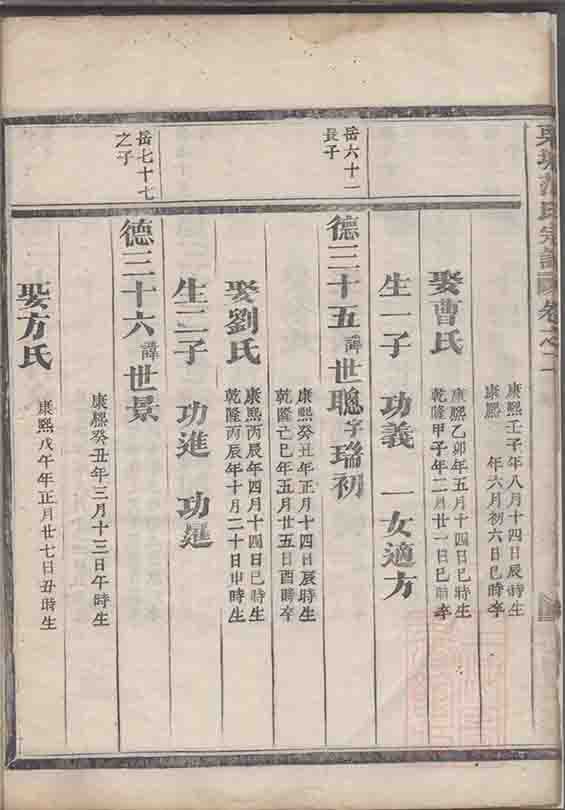 氏宗譜 卷之二
康熙壬子年八月十四日辰時生
康熙 年六月初六日巳時卒
娶曹氏
康熙乙卯年五月十四日巳時生
乾隆甲子年二月廿一日巳時卒
生一子 功義 一女適方
岳六十一
長子
德三十五 諱 世聰 字 瑞初
康熙癸丑年正月十四日辰時生
乾隆己巳年五月廿五日酉時卒
娶劉氏
康熙丙辰年四月十四日巳時生
乾隆丙辰年十月二十日申時生
生二子 功進 功
岳七十七
之子
德三十六 諱 世景
康熙癸丑年三月十三日午時生
娶方氏
康熙戊午年正月廿七日丑時生